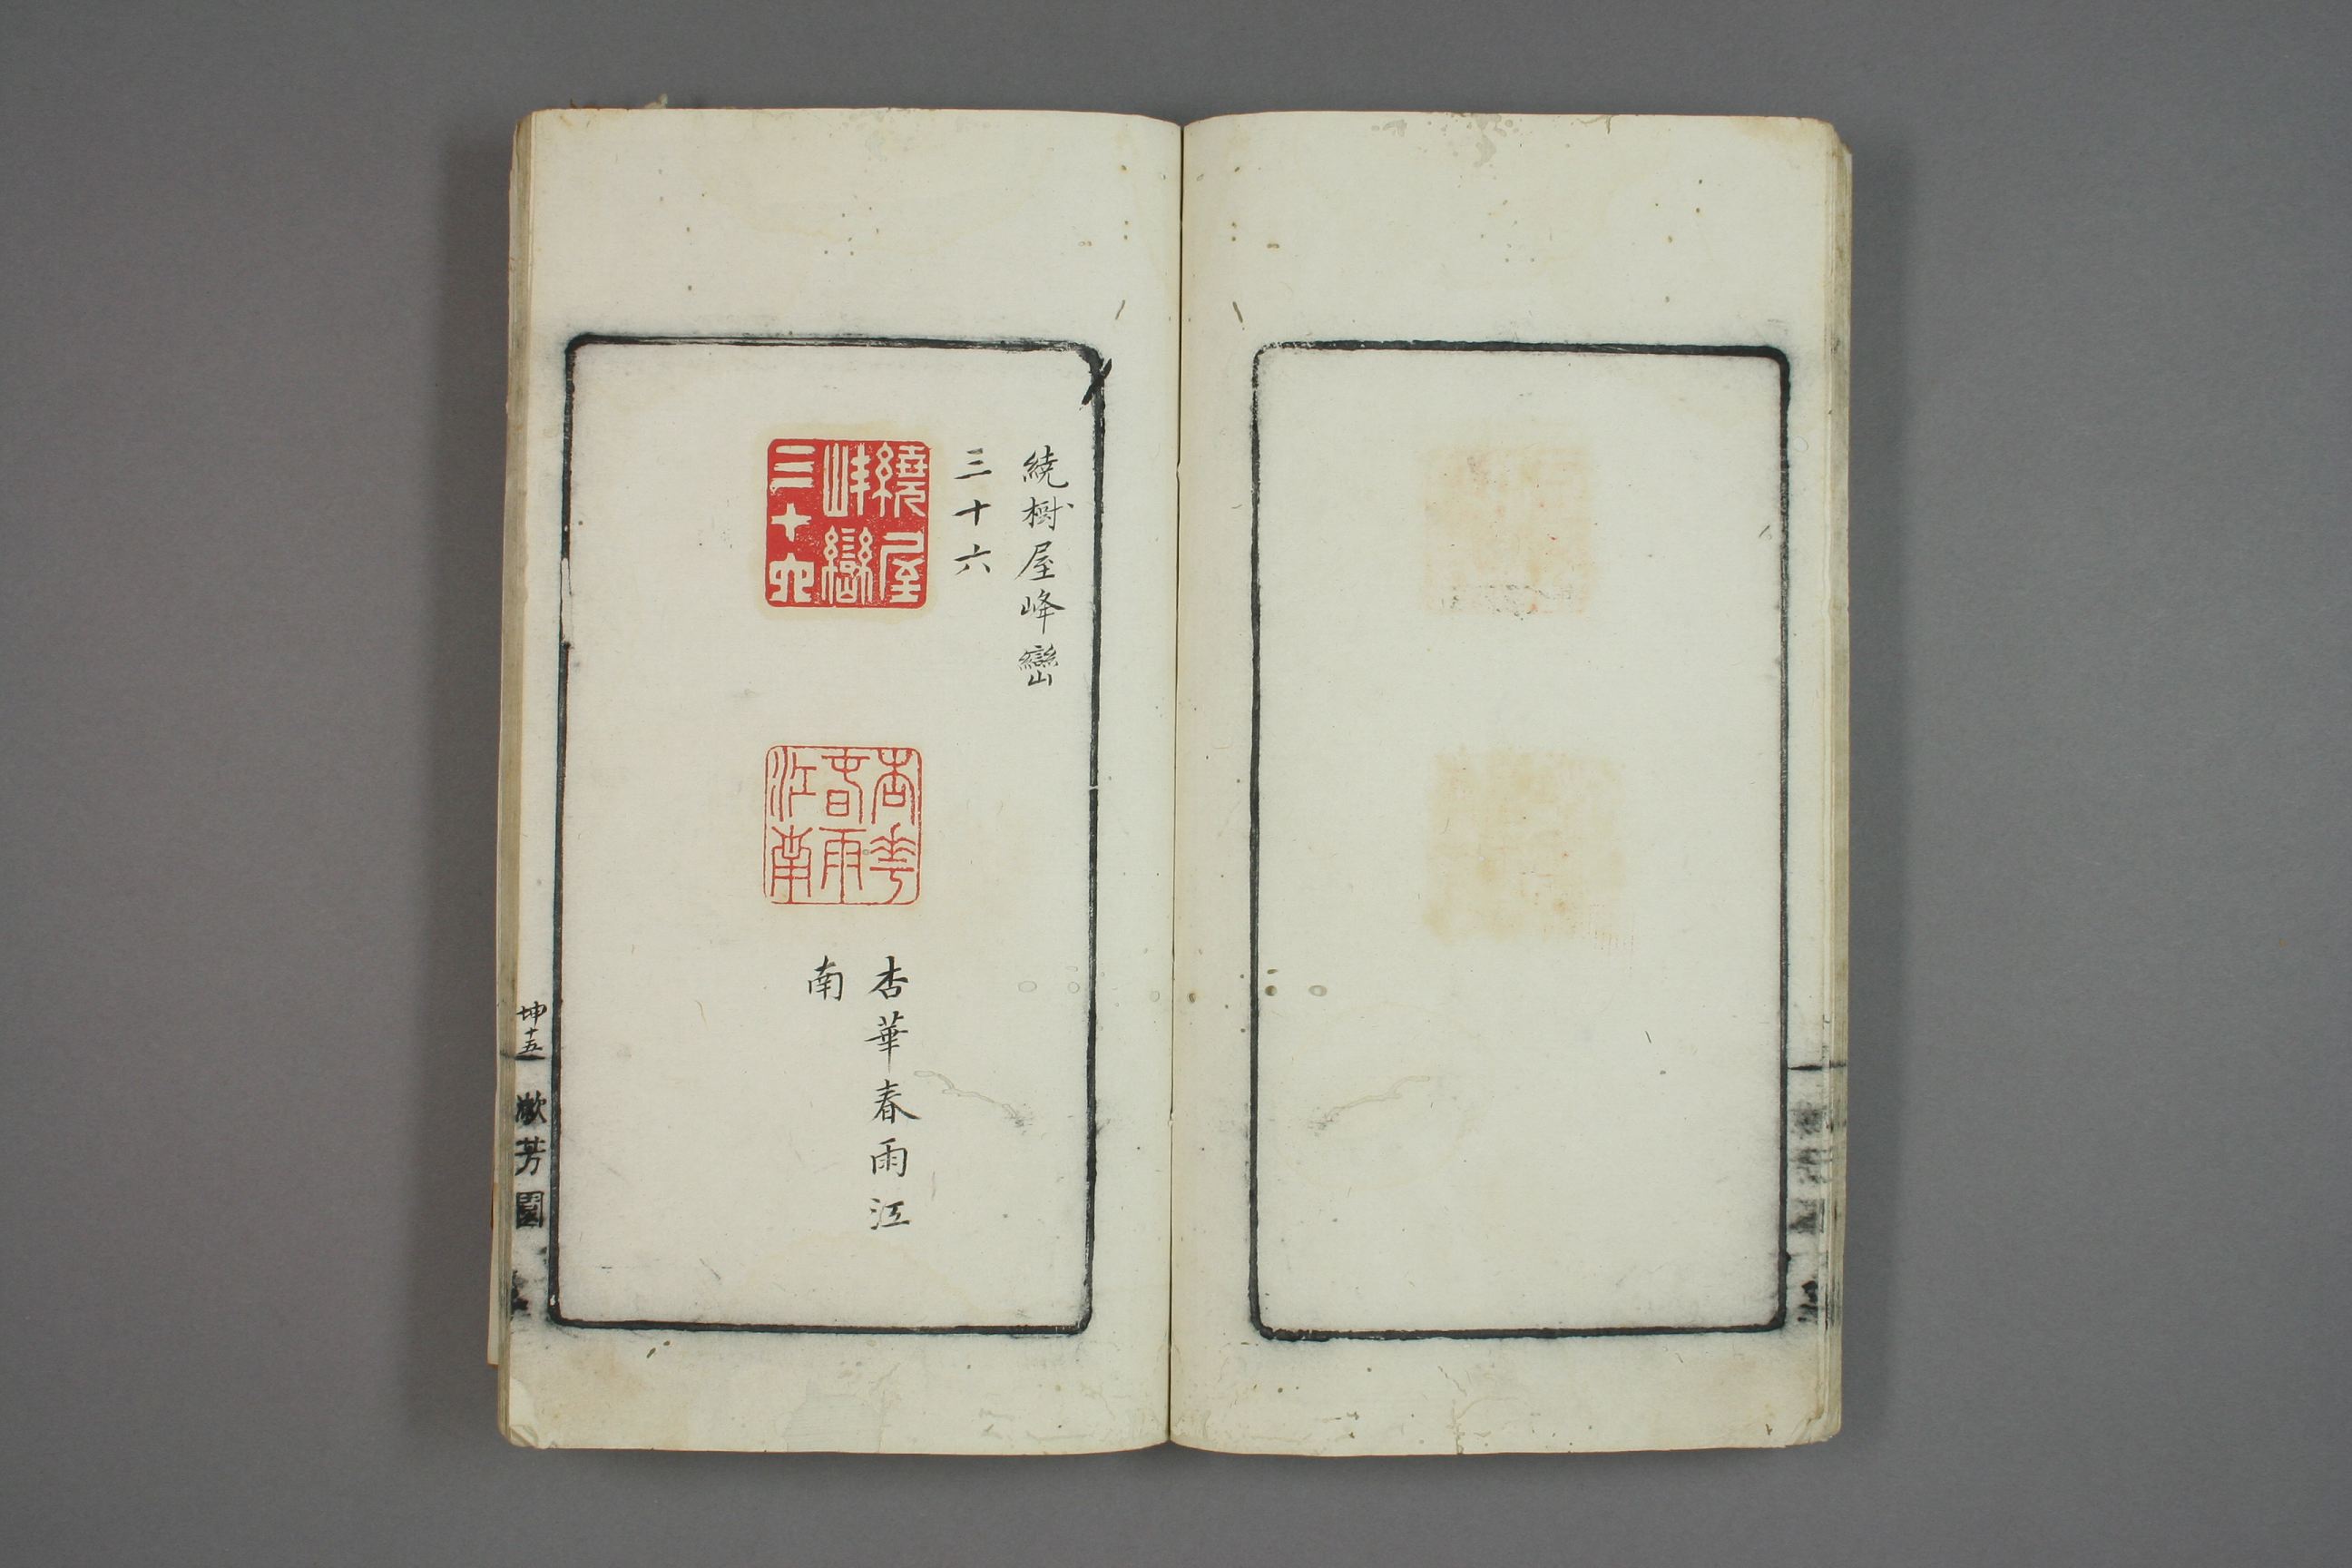 繞樹屋峰巒
三十六
繞屋
峰巒
三十六
杏華
春雨
江南
杏華春雨江
南
坤十五
漱芳園